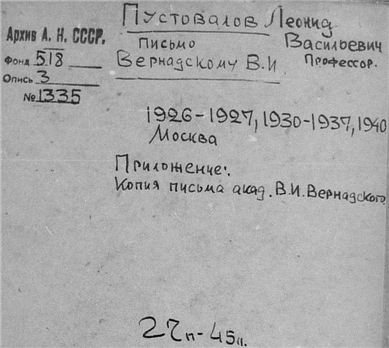 Архив А. Н. СССР.
Фонд 518
Опись 3
№ 1335
Пустовалов Леонид
Васильевич
Профессор.
Письмо
Вернадскому В.И
1926-1927, 1930-1937, 1940
Москва
Приложение:
Копия письма акад. В.И. Вернадского.
27п-45л.